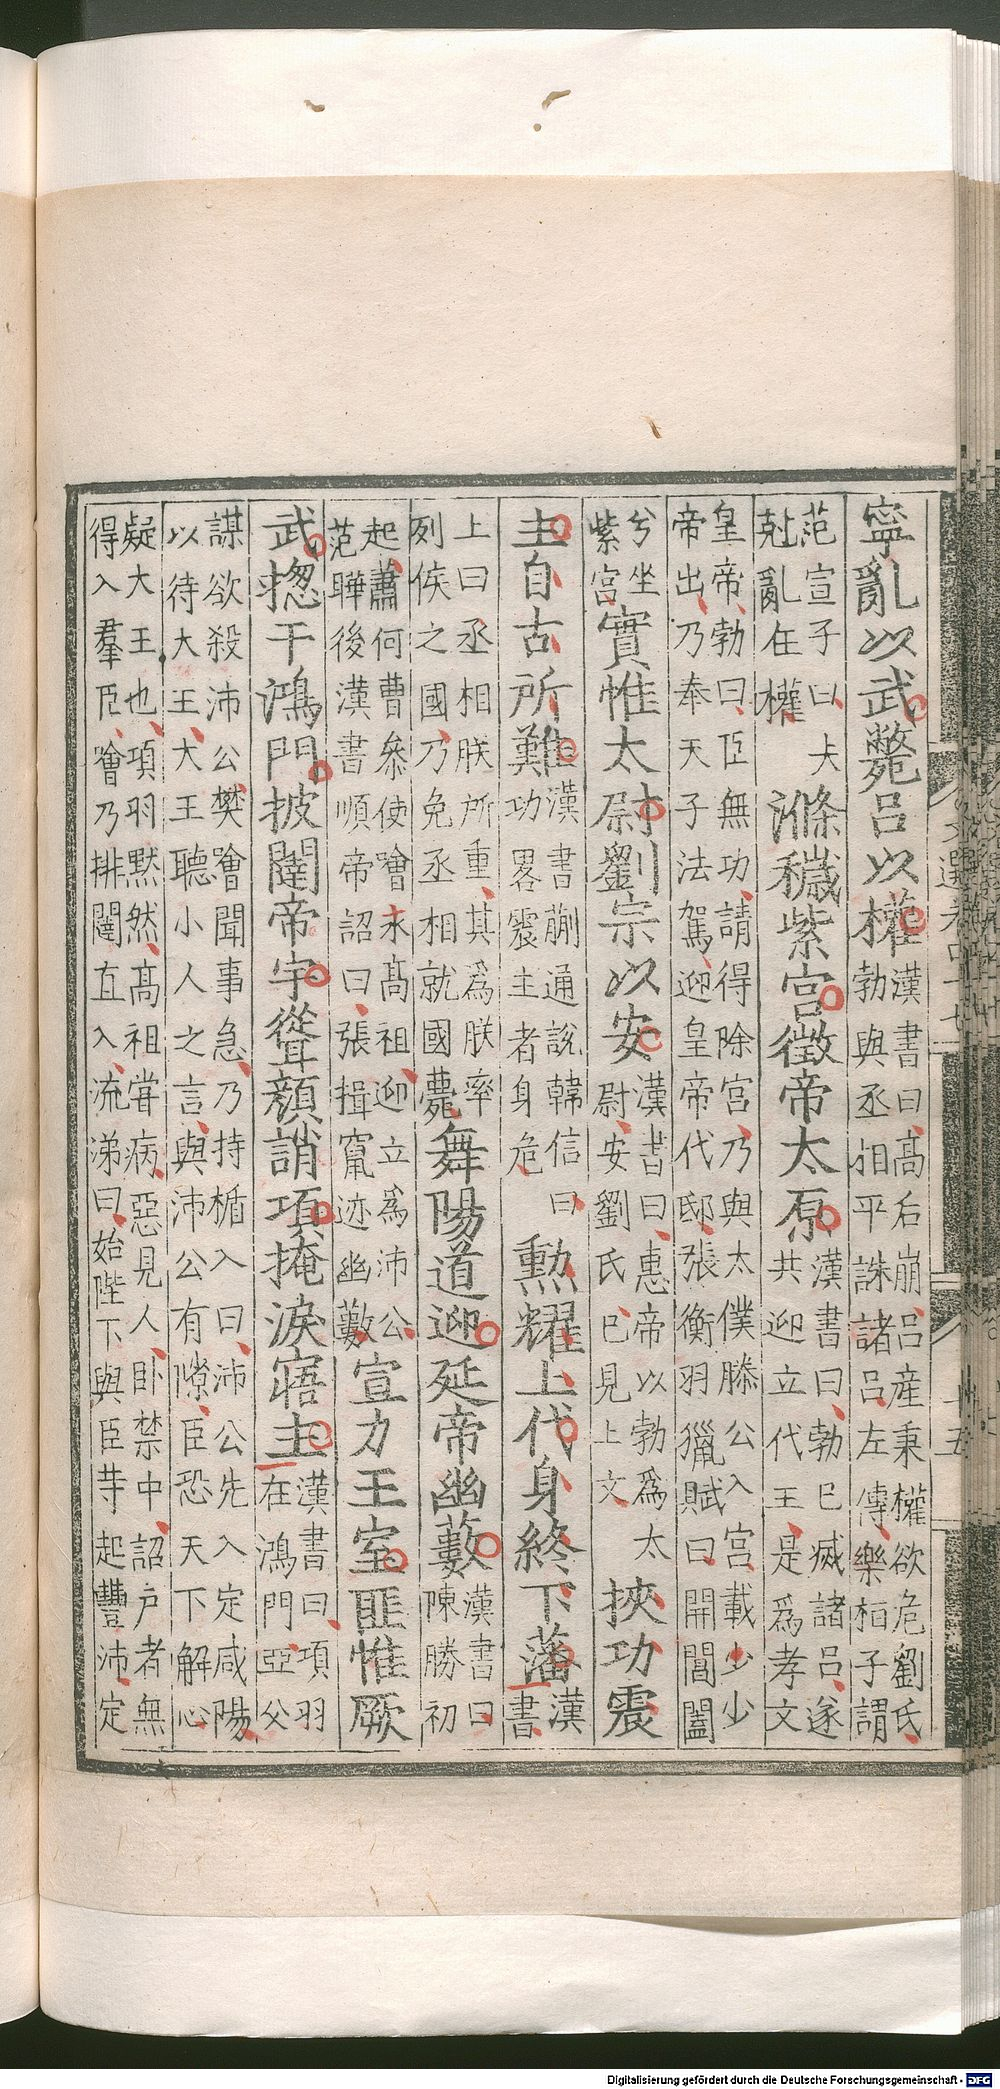 寧亂以武斃呂以權漢書曰高后崩呂産秉權欲危劉氏
勃與丞相平誅諸呂左傳樂桓子謂
范宣子曰夫
尅亂在權滌穢紫宮徵帝太原漢書曰勃已滅諸呂遂
共迎立代王是爲孝文
皇帝勃曰臣無功請得除宮乃與太僕滕公入宮載少少
帝出乃奉天子法駕迎皇帝代邸張衡羽獵賦曰開閶闔
兮坐
紫宮實惟太尉劉宗以安漢書曰惠帝以勃爲太
尉安劉氏已見上文挾功震
主自古所難漢書蒯通說韓信曰
功畧震主者身危勲耀上代身終下藩漢
書
上曰丞相朕所重其爲朕率
列侯之國乃免丞相就國薨舞陽道迎延帝幽藪漢書曰
陳勝初
起蕭何曹叅使噲求髙祖迎立爲沛公
范曄後漢書順帝詔曰張揖竄迹幽藪宣力王室匪惟厥
武揔干鴻門披闥帝宇聳顏誚項掩淚寤主漢書曰項羽
在鴻門亞父
謀欲殺沛公樊噲聞事急乃持楯入曰沛公先入定咸陽
以待大王大王聽小人之言與沛公有隙臣恐天下解心
疑大王也項羽黙然髙祖甞病惡見人卧禁中詔户者無
得入羣臣噲乃排闥直入流涕曰始陛下與臣等起豐沛定
Digitalisierung gefördert durch die Deutsche Forschungsgemeinschaft - DFG